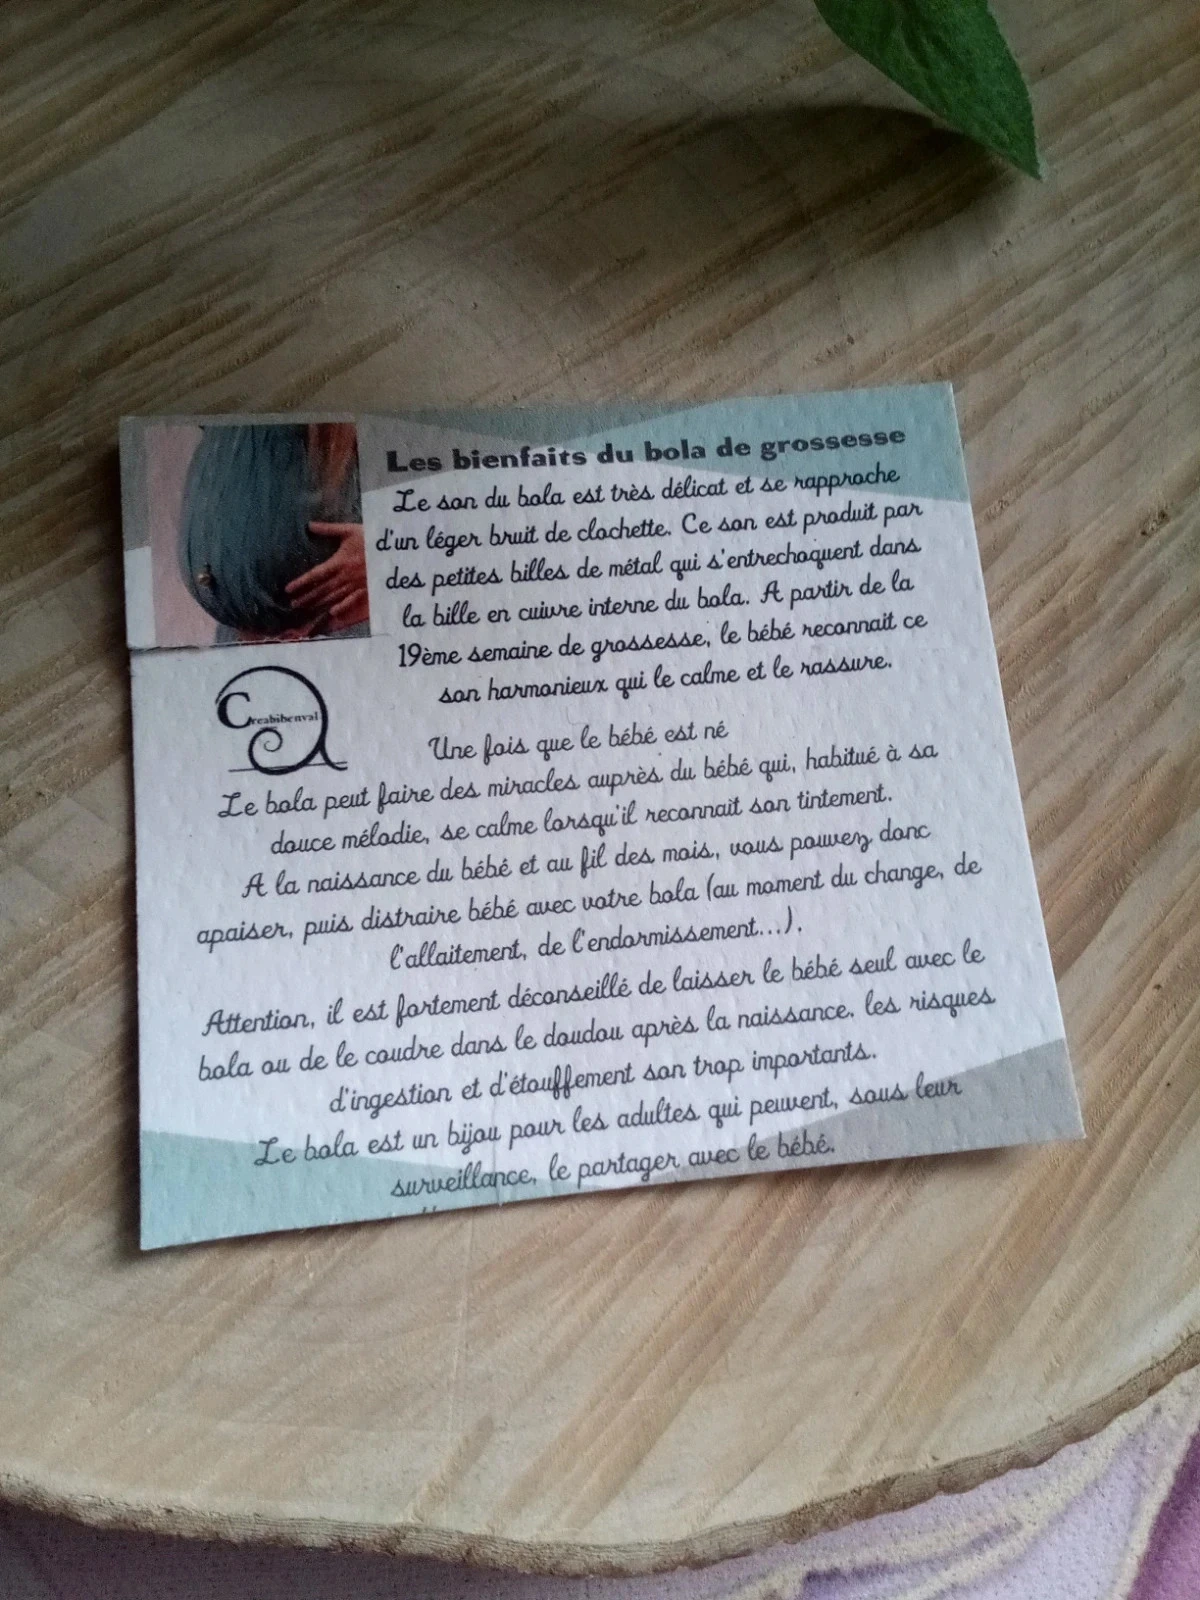 Les bienfaits du bola de grossesse
Le son du bola est très délicat et se rapproche
d'un léger bruit de clochette. Ce son est produit par
des petites billes de métal qui s'entrechoquent dans
la bille en cuivre interne du bola. A partir de la
19ème semaine de grossesse, le bébé reconnait ce
son harmonieux qui le calme et le rassure.
Creabibenval
Une fois que le bébé est né
Le bola peut faire des miracles auprès du bébé qui, habitué à sa
douce mélodie, se calme lorsqu'il reconnait son tintement.
A la naissance du bébé et au fil des mois, vous pouvez donc
apaiser, puis distraire bébé avec votre bola (au moment du change, de
l'allaitement, de l'endormissement...).
Attention, il est fortement déconseillé de laisser le bébé seul avec le
bola ou de le coudre dans le doudou après la naissance. les risques
d'ingestion et d'étouffement son trop importants.
Le bola est un bijou pour les adultes qui peuvent, sous leur
surveillance, le partager avec le bébé.